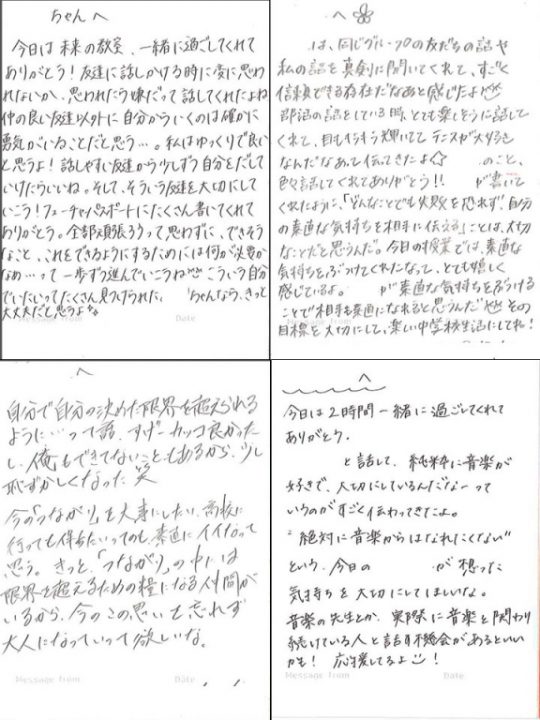 ちゃんへ
今日は未来の教室、一緒に過ごしてくれて
ありがとう！友達に話しかける時に変に思わ
れないか、思われたら嫌だって話してくれたよね
仲の良い友達以外に自分からいくのは確かに
勇気がいることだと思う…。私はゆっくりで良い
と思うよ！話しやすい友達から少しずつ自分をだして
いけたらいいね。そして、そういう友達を大切にして
いこう！フューチャーパスポートにたくさん書いてくれて
ありがとう。全部頑張ろうって思わずに、できそう
なこと、これをできるようにするためには何が必要か
なぁ…って一歩ずつ進んでいこうね こういう自分
でいたいってたくさん見つけられた、 ちゃんなら、きっと
大丈夫だと思うよ
Message from Date
へ
は、同じグループの友だちの話や
私の話を真剣に聞いてくれて、すごく
信頼できる存在だなあと感じたよ
部活の話をしている時、とても楽しそうに話して
くれて、目もキラキラ輝いてて テニスが大好き
なんだなあって伝わってきたよ☆ のこと、
色々話してくれてありがとう!! が書いて
くれたように、「どんなことでも失敗を恐れず自分
の素直な気持ちを相手に伝える」ことは、大切
なことだと思うんだ。今日の授業では、素直な
気持ちをぶつけてくれたなって、とても嬉しく
感じているよ。 が素直な気持ちをぶつける
ことで相手も素直になれると思うんだ その
目標を大切にして、楽しい中学校生活にしてね！
へ
自分で自分の決めた限界を超えられる
ように…って話、すげーカッコ良かった
し、俺もできてないこともあるから、少し
恥ずかしくなった 笑
今の「つながり」を大事にしたい、高校に
行っても保ちたいってのも、素直にイイなって
思う。きっと、「つながり」の中には
限界を超えるための糧になる仲間が
いるから、今のこの思いを忘れず
大人になっていって欲しいな。
Message from Date
へ
今日は2時間一緒に過ごしてくれて
ありがとう。
と話して、純粋に音楽が
好きで、大切にしているんだなーって
いうのがすごく伝わってきたよ。
"絶対に音楽からはなれたくない"
という、今日の が想った
気持ちを大切にしてほしいな。
音楽の先生とか、実際に音楽と関わり
続けている人と話す機会があるといい
かも！ 応援してるよ
Message from Date